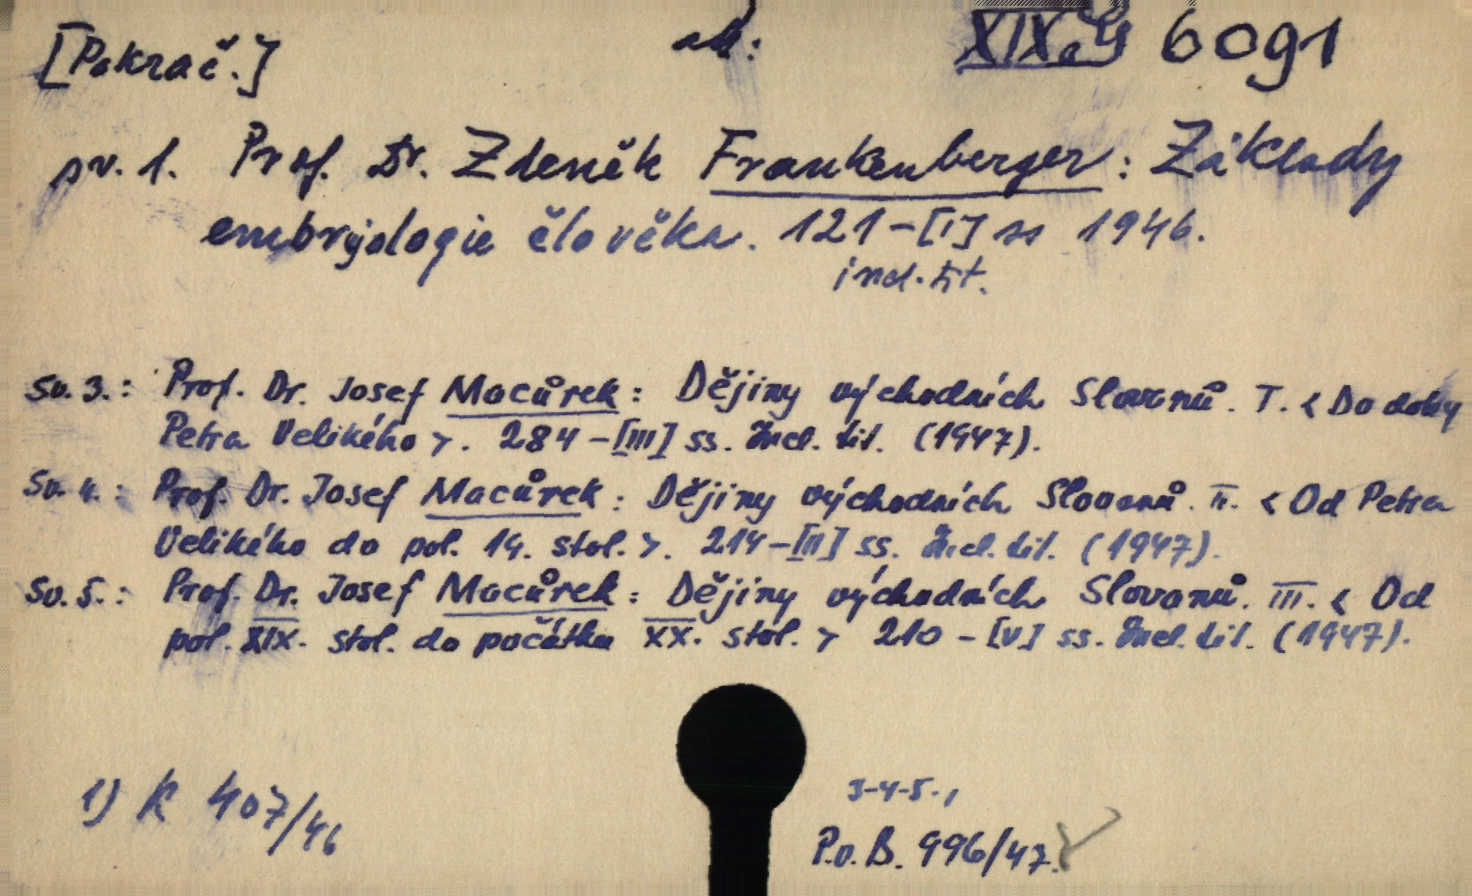 [Pokrač.] ak: XIX.a.G 6091
sv. 1. Prof. Dr. Zdeněk Frankenberger: Základy
embryologie člověka. 121-[I] ss 1946.
incl. tit.
Sv. 3.: Prof. Dr. Josef Macůrek: Dějiny východních Slovanů. I. < Do doby
Petra Velikého >. 284-[III] ss. Incl. tit. (1947).
Sv. 4.: Prof. Dr. Josef Macůrek: Dějiny východních Slovanů. II. < Od Petra
Velikého do pol. 19. stol. >. 214-[II] ss. Incl. tit. (1947).
Sv. 5.: Prof. Dr. Josef Macůrek: Dějiny východních Slovanů. III. < Od
pol. XIX. stol. do počátku XX. stol. > 210-[V] ss. Incl. tit. (1947).
1) K 407/46
3-4-5.,
P.o.B. 996/47.